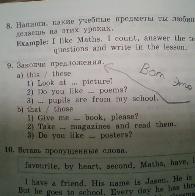 8. Напиши, какие учебные предметы ты любишь
делаешь на этих уроках.
Example: I like Maths. I count, answer the
questions and write in the lesson.
9. Закончи предложения.
a) this / these
1) Look at ... picture?
2) Do you like ... poems?
3) ... pupils are from my school.
b) that / those
1) Give me ... book, please?
2) Take ... magazines and read them.
3) Do you like ... posters?
Вот это
10. Вставь пропущенные слова.
favourite, by heart, second, Maths, have,
I have a friend. His name is Jason. He is
But he goes to school. Every day he has